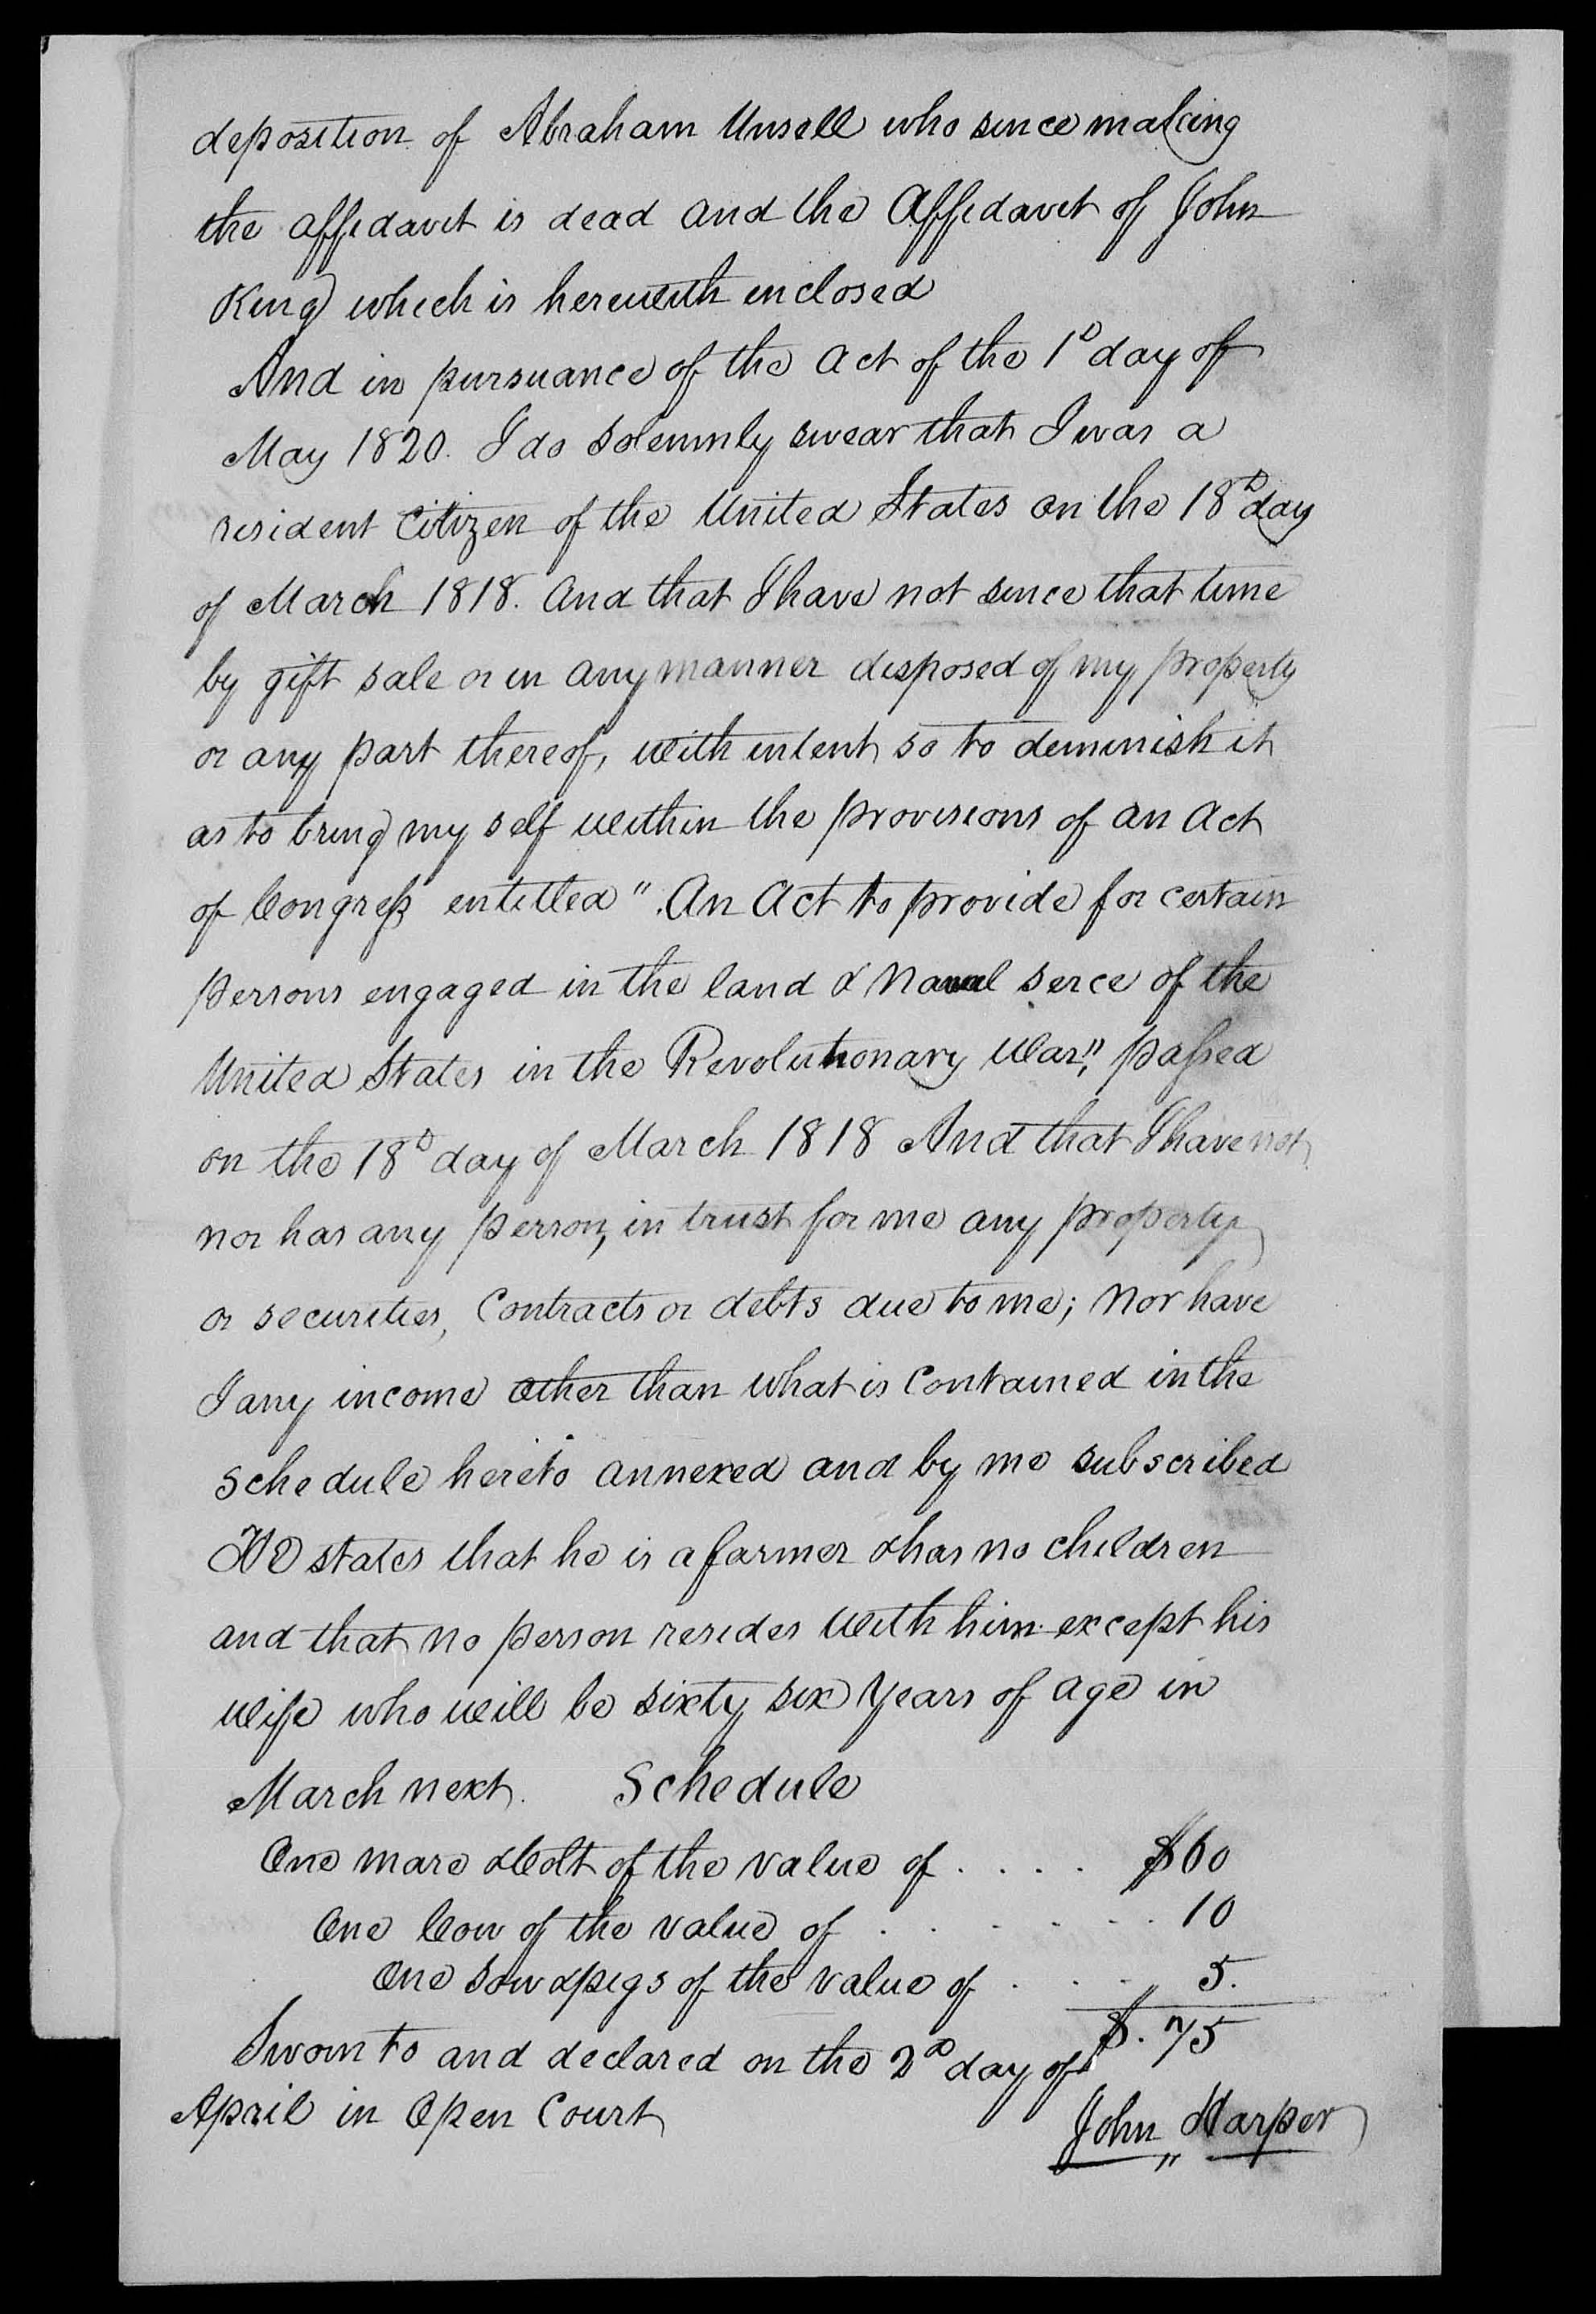 deposition of Abraham Unsell who since making
the affidavit is dead and the Affidavit of John
King which is herewith enclosed
And in pursuance of the act of the 1D day of
May 1820. I do solemnly swear that I was a
resident Citizen of the United States on the 18D day
of March 1818. and that I have not since that time
by gift sale or in any manner disposed of my property
or any part thereof, with intent so to deminish it
as to bring my self within the provisions of an act
of Congress entitled ". An Act to provide for certain
persons engaged in the land & Naval serce of the
United States in the Revolutionary War", passed
on the 18D day of March 1818 And that I have not
nor has any person, in trust for me any property
or securities, Contracts or debts due to me; nor have
I any income other than what is Contained in the
schedule hereto annexed and by me subscribed
He states that he is a farmer & has no children
and that no person resides with him except his
wife who will be sixty six years of age in
March next. Schedule
One mare & Colt of the value of . . . . $60
One Cow of the value of . . . . . . 10
One sow & pigs of the value of . . . 5.
$. 75
Sworn to and declared on the 2D day of
April in Open Court
John Harper